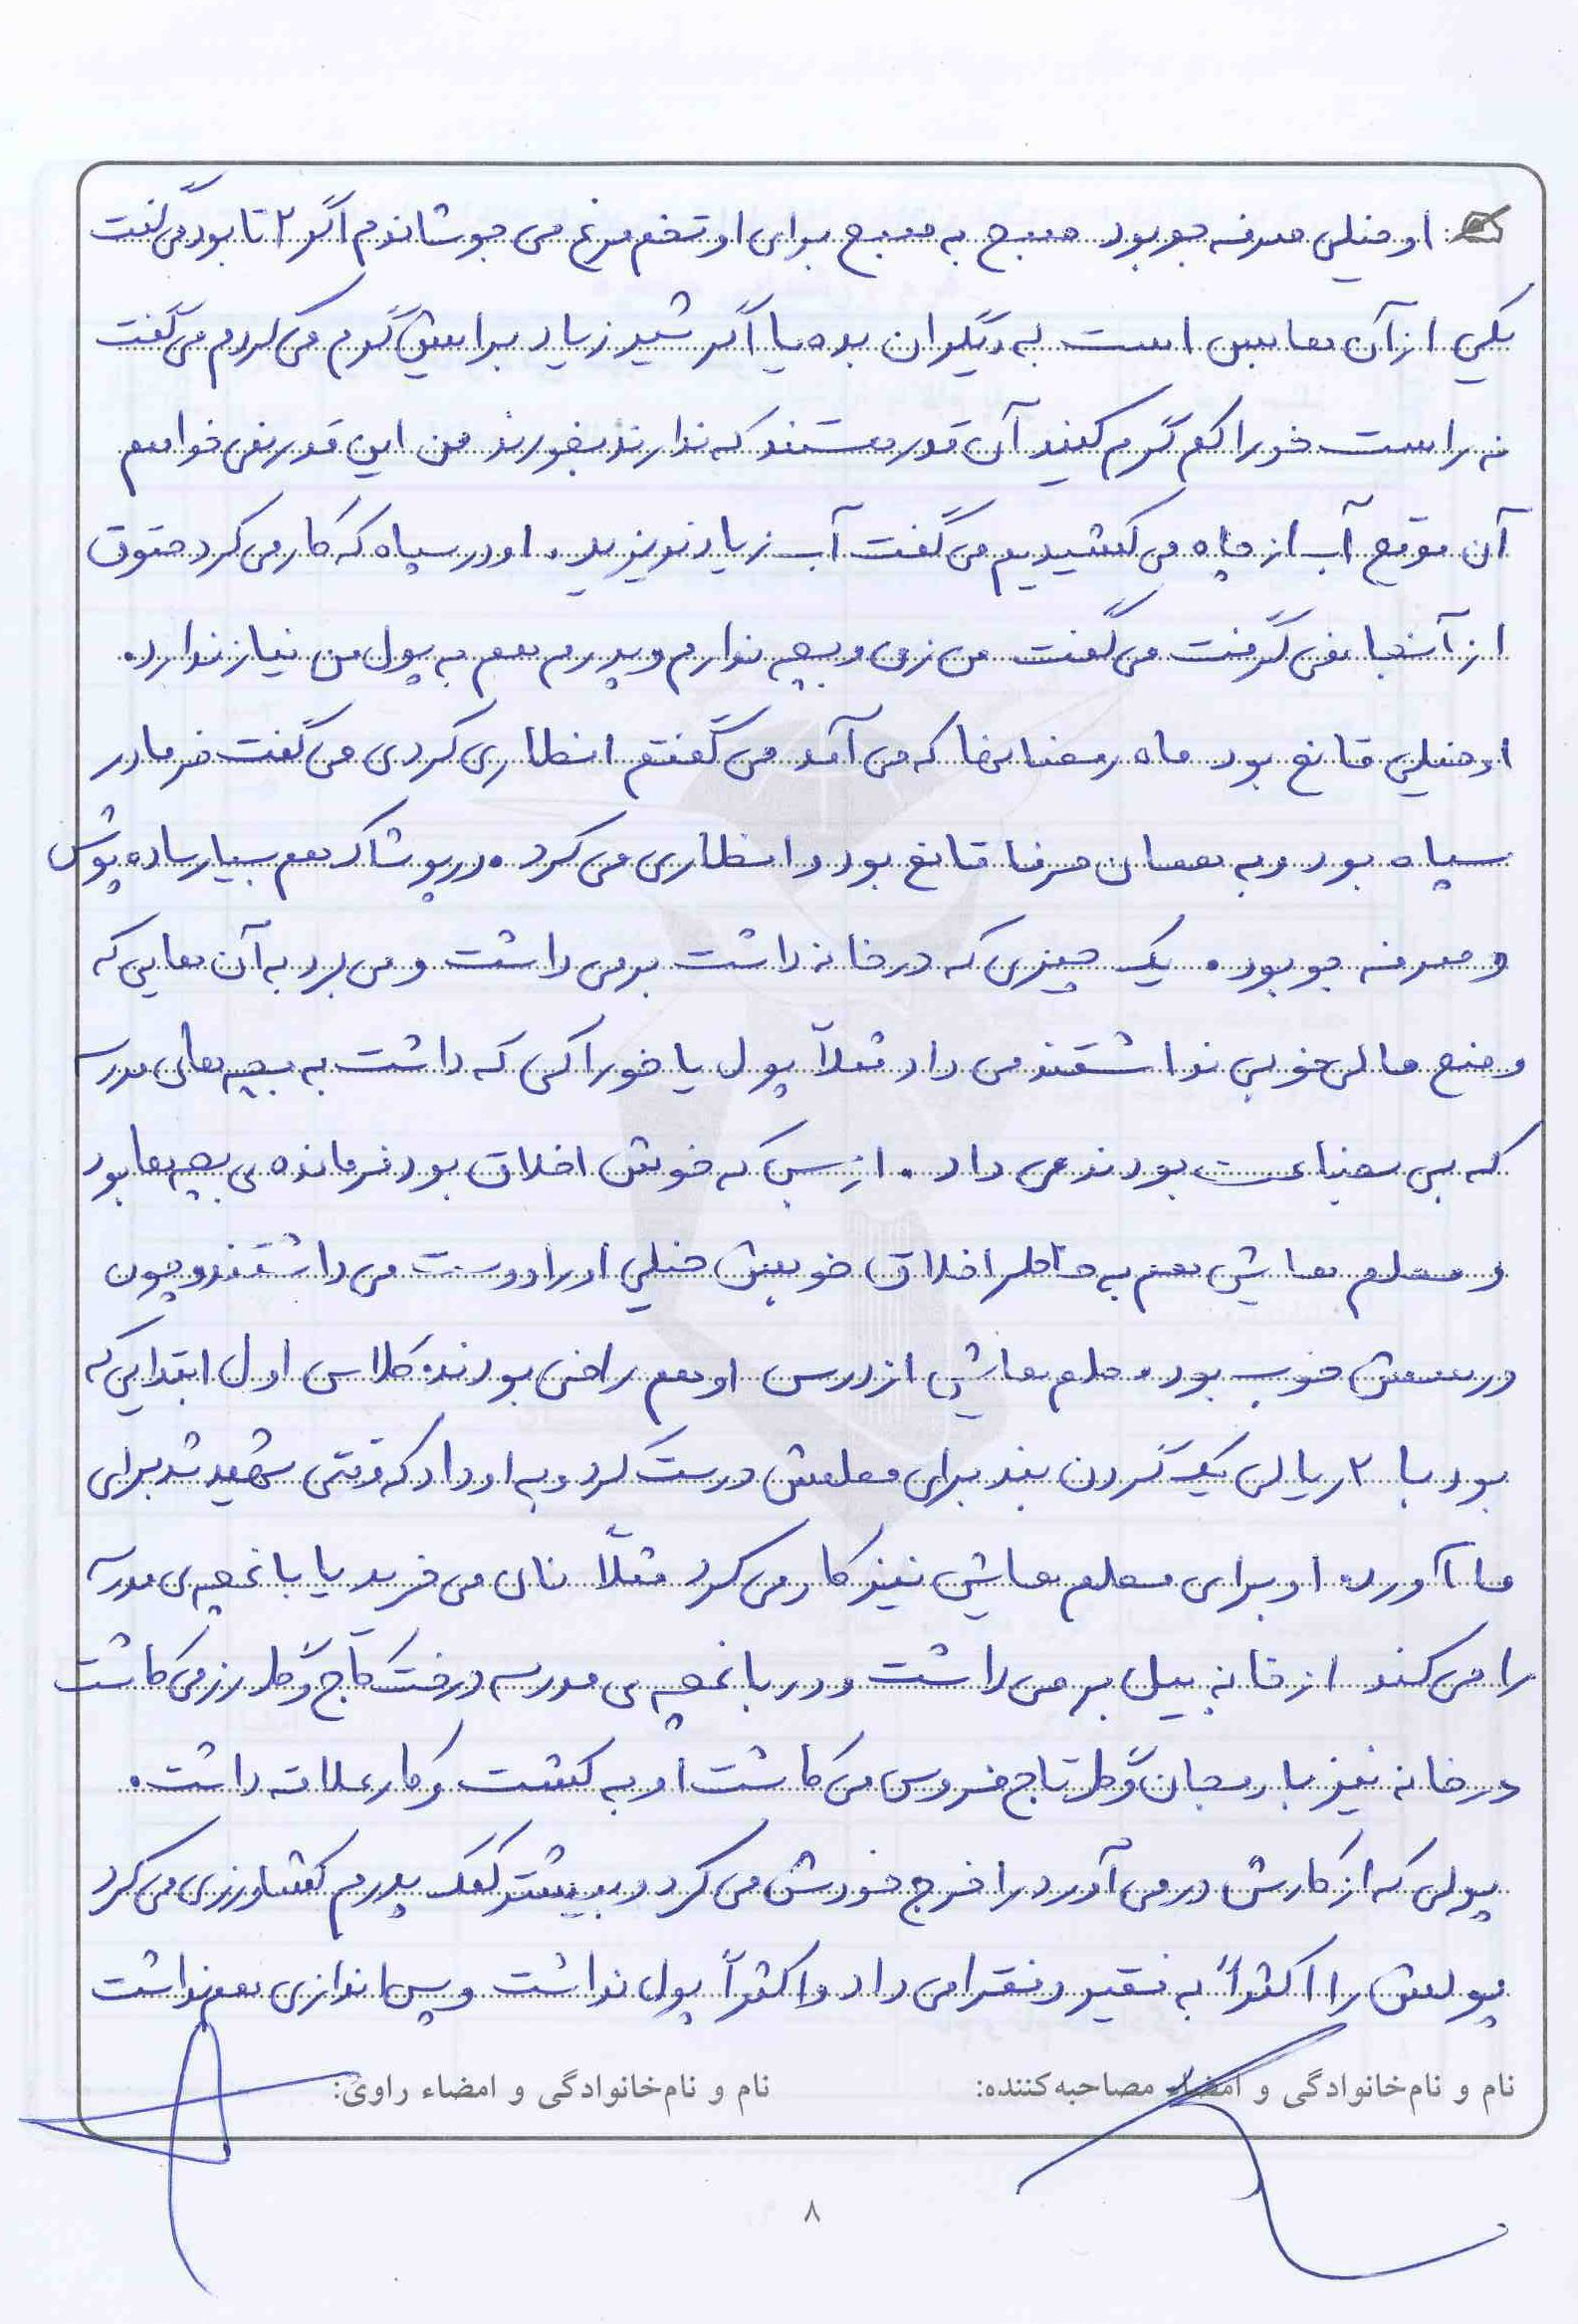 او خیلی صرفه جو بود صبح به صبح برای او تخم مرغ می جوشاندم اگر ۲ تا بود می گفت
یکی از آن ها بس است به دیگران بده یا اگر شیر زیاد برایش گرم می کردم می گفت
نه راست خوراکم گرم کنید آن قدر هستند که ندارند بخورند من این قدر نمی خواهم
آن موقع آب از چاه می کشیدیم می گفت آب زیاد نریزید. او در سپاه که کار می کرد حقوق
از آنجا نمی گرفت می گفت من زن و بچه ندارم و پدرم هم به پول من نیاز ندارد.
او خیلی قانع بود ماه رمضانها که می آمد می گفتم افطاری کردی می گفت خرما در
سپاه بود و به همان خرما قانع بود و افطاری می کرد. در پوشاک هم بسیار ساده پوش
و صرفه جو بود. یک چیزی که در خانه داشت بر می داشت و می برد به آن هایی که
وضع مالی خوبی نداشتند می داد مثلاً پول یا خوراکی که داشت به بچه های مدرسه
که بی بضاعت بودند می داد. از بس که خوش اخلاق بود فرمانده ی بچه ها بود
و معلم هایش هم به خاطر اخلاق خوبش خیلی او را دوست می داشتند و چون
درسش خوب بود معلم هایش از درس او هم راضی بودند. کلاس اول ابتدایی که
بود با ۲ ریالی یک گردن بند برای معلمش درست کرد و به او داد که وقتی شهید شد برای
ما آورد. او برای معلم هایش نیز کار می کرد مثلاً نان می خرید یا باغچه ی مدرسه
را می کند از خانه بیل بر می داشت و در باغچه ی مدرسه درخت کاج و گل رز می کاشت
در خانه نیز بادمجان و گل تاج خروس می کاشت او به کشت و کار علاقه داشت.
پولی که از کارش در می آورد را خرج خودش می کرد و بیشتر کمک پدرم کشاورزی می کرد
پولش را اکثراً به فقیر و فقرا می داد و اکثراً پول نداشت و پس اندازی هم نداشت
نام و نام‌خانوادگی و امضاء مصاحبه‌کننده: نام و نام‌خانوادگی و امضاء راوی:
۸